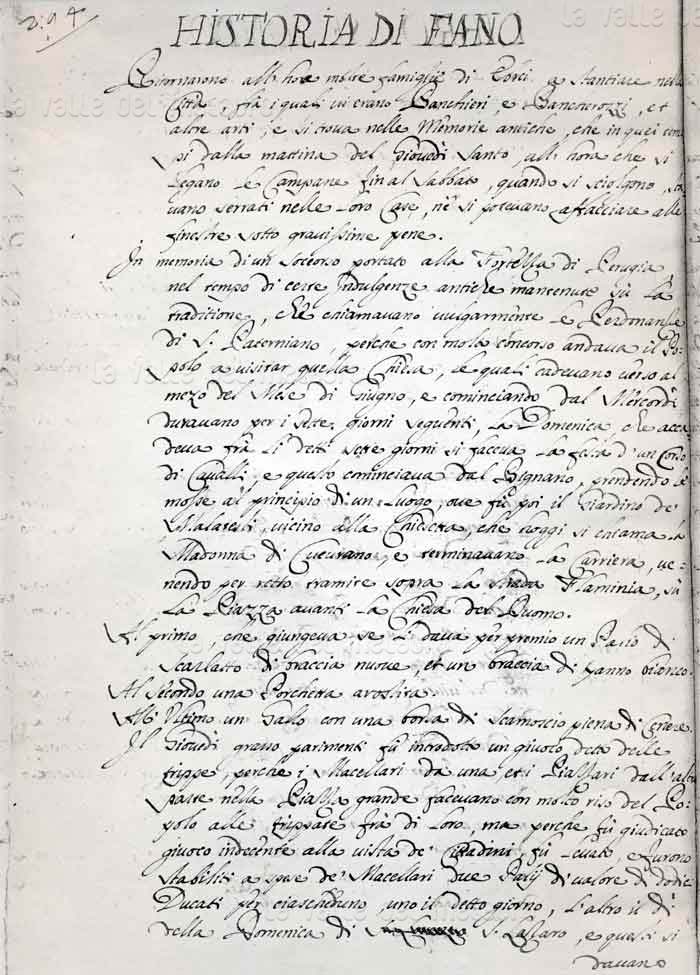 294
HISTORIA DI FANO
Ritornarono all' hora molte famiglie di Torci a stantiare nella
Città, frà i quali vi erano Banchieri, e Bancherozzi, et
altre arti, e si trova nelle Memorie antiche, che in quei tem
pi dalla mattina del Giovedì Santo, all' hora che si
legano le Campane fin al Sabbato, quando si sciolgono, sta
vano serrati nelle loro Case, ne si potevano affacciare alle
finestre sotto gravissime pene.
In memoria di un soccorso portato alla Fortezza di Perugia
nel tempo di certe Indulgenze antiche mantenute sù la
traditione, che chiamavano vulgarmente le Perdonanze
di S. Paterniano, perche con molto concorso andava il Po
polo a visitar quella Chiesa, le quali cadevano verso al
mezo del Mese di Giugno, e cominciando dal Mercordì
duravano per i sette giorni seguenti, la Domenica che acca
deva frà li detti sette giorni si faceva la festa d' un Corso
di Cavalli, e questo cominciava dal Bignano, prendendo le
mosse al principio di un luogo, ove fù poi il Giardino de'
vicino alla Chiesetta, che hoggi si chiama la
Madonna di e terminavano la Carriera, ve=
nendo per retto tramite sopra la strada Flaminia, sù
la Piazza avanti la Chiesa del Duomo.
Al primo, che giungeva se li dava per premio un Pasio di
Scarlatto di braccia nuove, et un braccia di panno bianco.
Al secondo una Porchetta arostita.
All' Ultimo un Gallo con una borsa di Scamoscio piena di Cenere.
Il Giovedì grasso parimenti fù introdotto un giuoco detto delle
trippe, perche i Macellari da una et i Piazzari dall' altra
parte nella Piazza grande facevano con molto riso del Po=
polo alle trippate frà di loro, ma perche fù giudicato
giuoco indecente alla vista de' Cittadini, fù levato, e furono
stabiliti a spese de' Macellari due Parij di valore di dodici
Ducati per ciascheduno, uno il detto giorno, l'altro il dì
della Domenica di S. Lazzaro, e questi si
davano
la valle del metauro